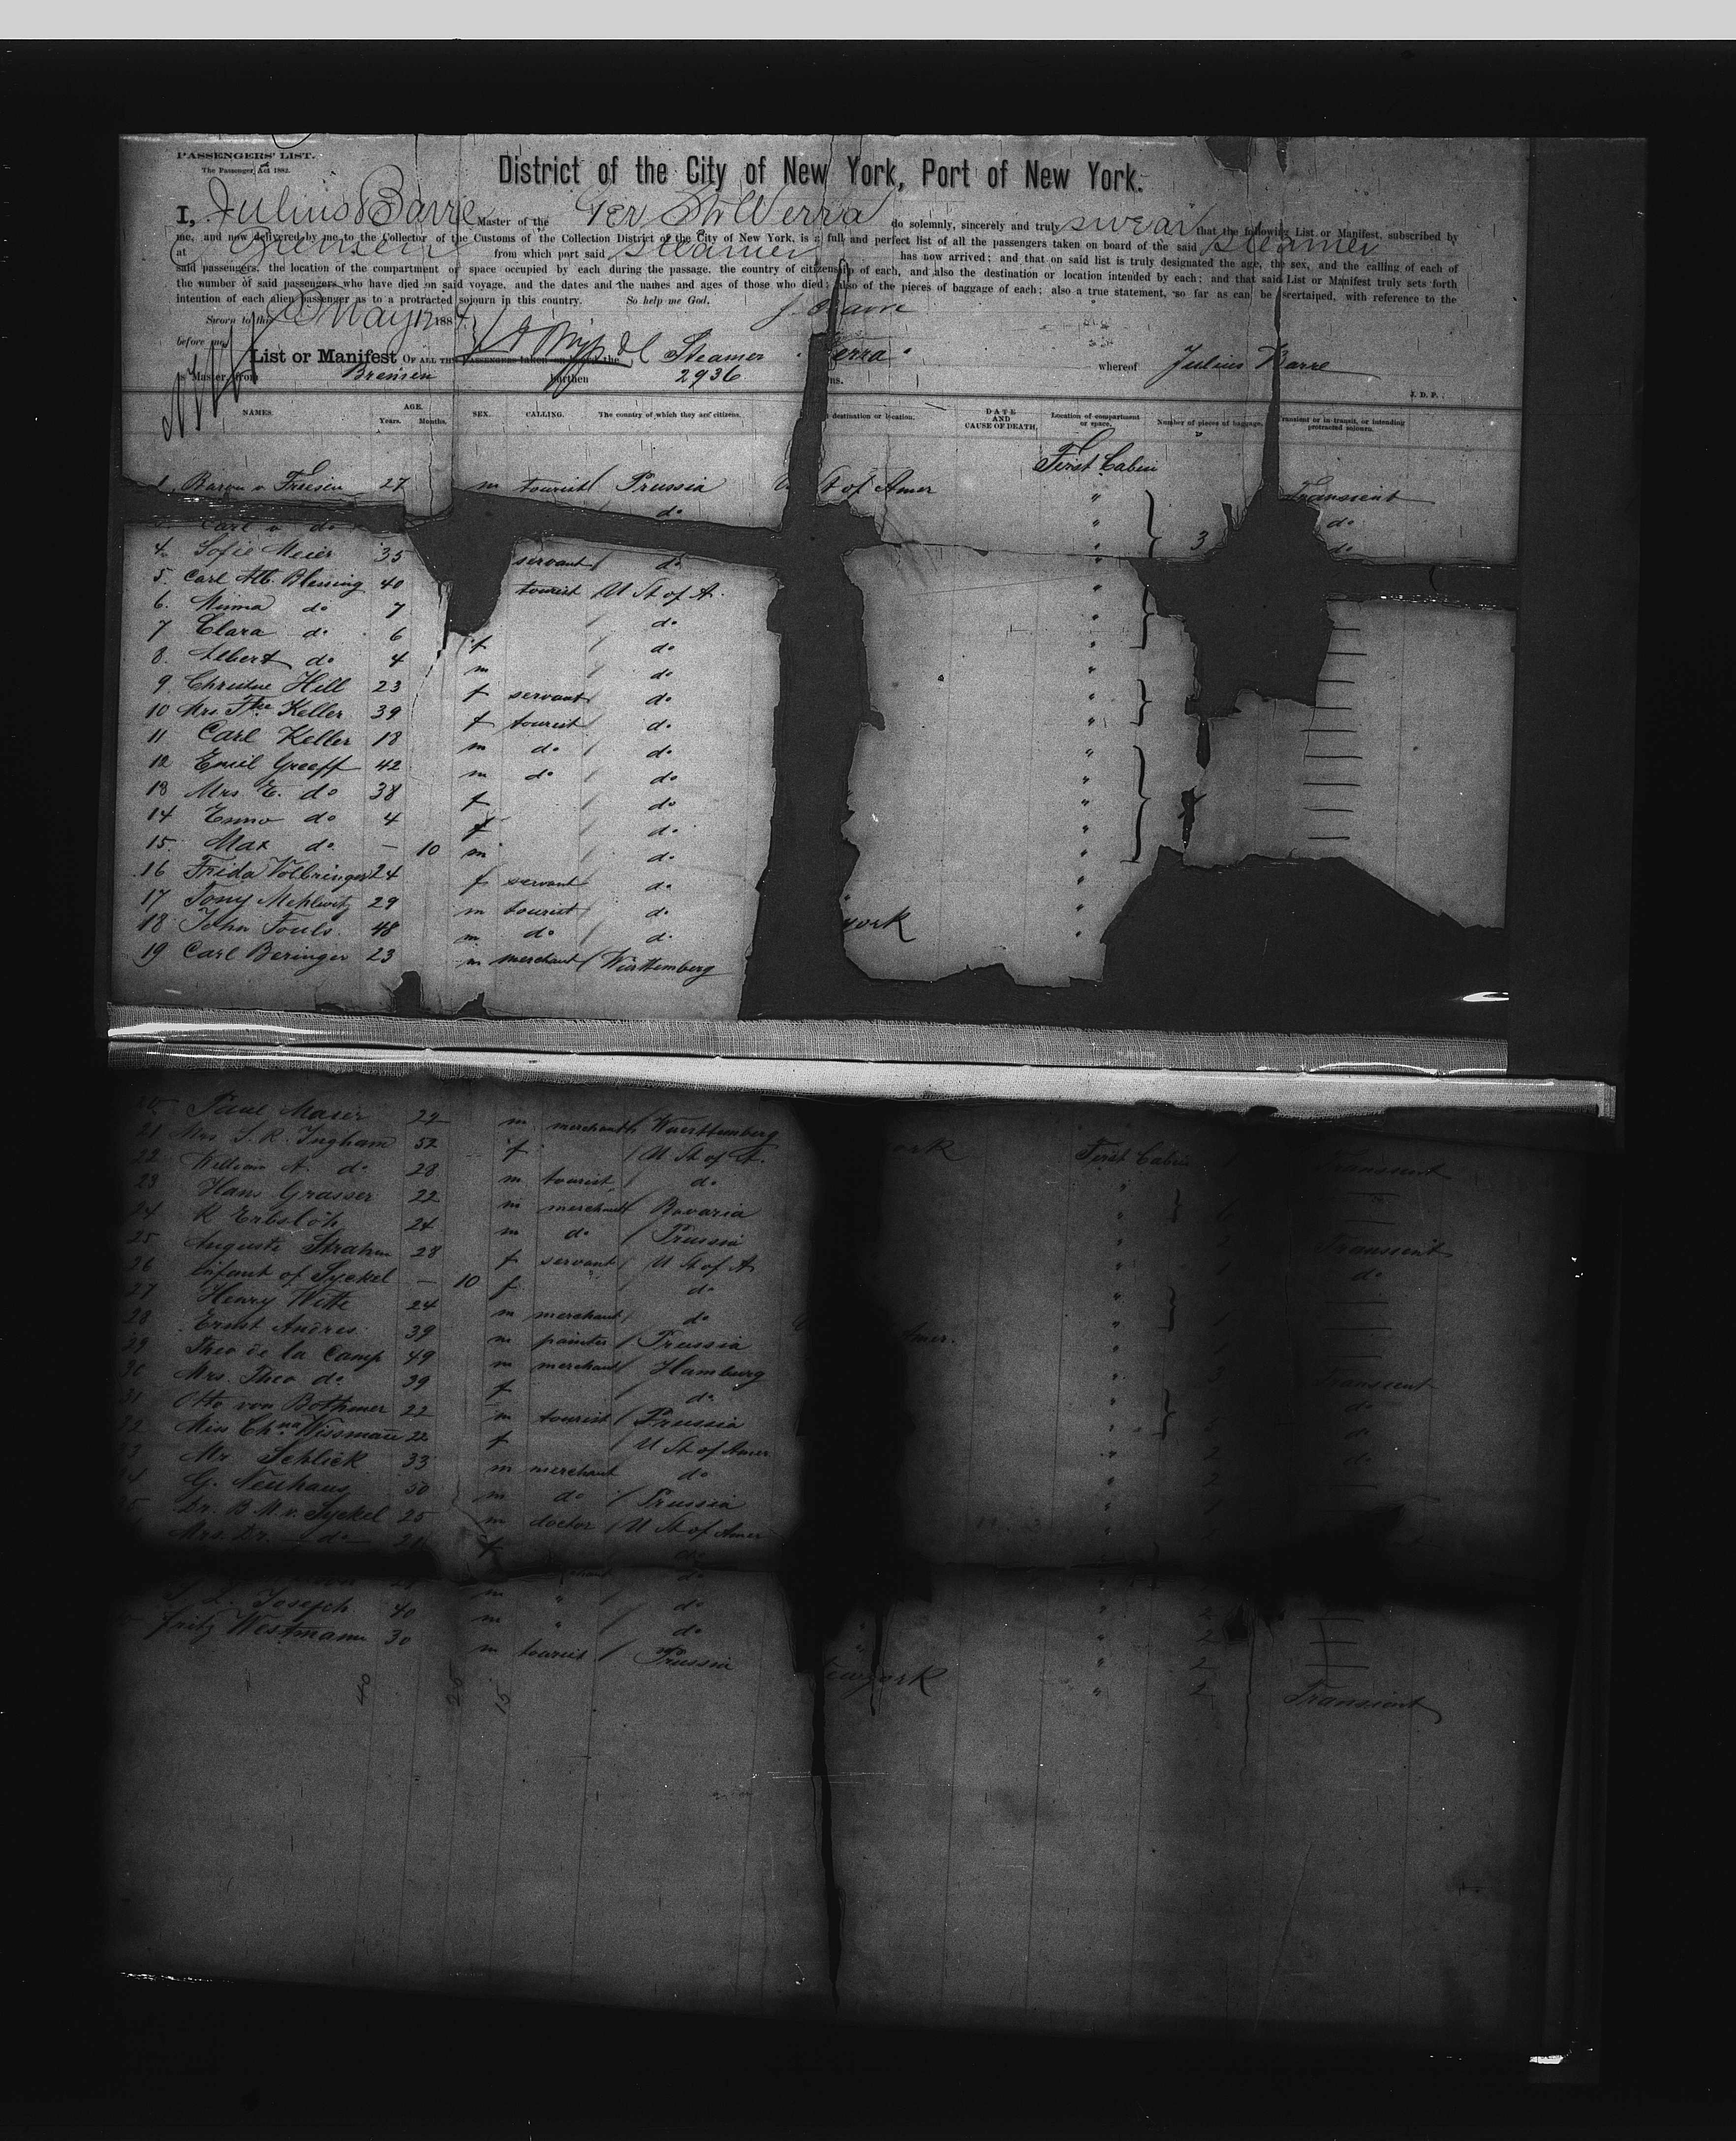 PASSENGERS' LIST.
The Passenger Act 1882.
District of the City of New York, Port of New York.
I, Julius Barre Master of the Ger Str Werra do solemnly, sincerely and truly swear that the following List or Manifest, subscribed by
me, and now delivered by me to the Collector of the Customs of the Collection District of the City of New York, is a full and perfect list of all the passengers taken on board of the said steamer
at Bremen from which port said steamer has now arrived; and that on said list is truly designated the age, the sex, and the calling of each of
said passengers, the location of the compartment or space occupied by each during the passage, the country of citizenship of each, and also the destination or location intended by each; and that said List or Manifest truly sets forth
the number of said passengers who have died on said voyage, and the dates and the names and ages of those who died; also of the pieces of baggage of each; also a true statement, so far as can be ascertained, with reference to the
intention of each alien passenger as to a protracted sojourn in this country. So help me God.
J. Barre
Sworn to this May 188
before me
List or Manifest OF ALL THE PASSENGERS taken on the Steamer "Werra" whereof Julius Barre
is Master, from Bremen burthen 2936 tons.
J. D. P.
NAMES. AGE. Years. Months. SEX. CALLING. The country of which they are citizens. destination or location. DATE AND CAUSE OF DEATH. Location of compartment or space. Number of pieces of baggage. Transient or in transit, or intending protracted sojourn.
First Cabin
1. Baron v Friesen 27 m tourist Prussia St of Amer " Transient
Carl v do do " do
4. Sofie Meier 35 servant do " 3 do
5. Carl Alb. Blessing 40 tourist U St of A. "
6. Minna do 7 do "
7 Clara do 6 f do "
8. Albert do 4 m do "
9. Christine Hill 23 f servant do "
10 Mrs Fke Keller 39 f tourist do "
11 Carl Keller 18 m do do "
12 Emil Greeff 42 m do do "
13 Mrs E. do 38 f do "
14 Enno do 4 f do "
15. Max do — 10 m do "
16 Frida Volbringer 24 f servant do "
17 Tony Mehlwitz 29 m tourist do "
18 John Fouls 48 m do do york "
19 Carl Beringer 23 m merchant Württemberg
20 Paul Maser 22 m merchant Wuerttemberg ork First Cabin Transient
21 Mrs. S. R. Ingham 52 f U St of A.
22 William A. do 28 m tourist do "
23 Hans Grasser 22 m merchant Bavaria " Transient
24 R Erbslöh 24 m do Prussia " do
25 Auguste Strahm 28 f servant U St of A
26 Infant of Syckel — 10 f do "
27 Henry Witte 24 m merchant do "
28 Ernst Andres 39 m painter Prussia Amer. "
29 Theo de la Camp 49 m merchant Hamburg " 3 Transient
30 Mrs. Theo do 39 f do " do
31 Otto von Bothmer 22 m tourist Prussia " 5 do
32 Miss Chna Wissmann 22 f U St of Amer " 2 do
33 Mr. Schlick 33 m merchant do " 2
34 G. Neuhaus 30 m do Prussia " 1
35 Dr. B. M. v. Syckel 25 m doctor U St of Amer
Mrs. Dr. do 21 f do
do
S. L. Joseph 40 m " do " 2
m " do " 2
Fritz Westmann 30 m tourist Prussia Newyork " 2 Transient
40 20 15